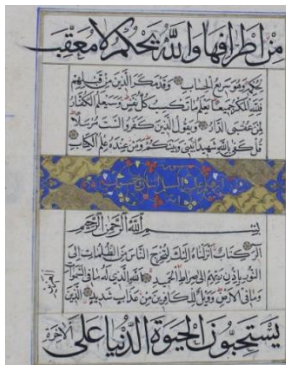 من اطرافها والله يحكم لا معقب
لحكمه وهو سريع الحساب وقد مكر الذين من قبلهم
فلله المكر جميعا يعلم ما تكسب كل نفس وسيعلم الكفار
لمن عقبى الدار ويقول الذين كفروا لست مرسلا
قل كفى بالله شهيدا بيني وبينكم ومن عنده علم الكتاب
بسم الله الرحمن الرحيم
الر كتاب انزلناه اليك لتخرج الناس من الظلمات الى
النور باذن ربهم الى صراط العزيز الحميد الله الذي له ما في السموات
وما في الارض وويل للكافرين من عذاب شديد الذين
يستحبون الحيوة الدنيا على الاخرة